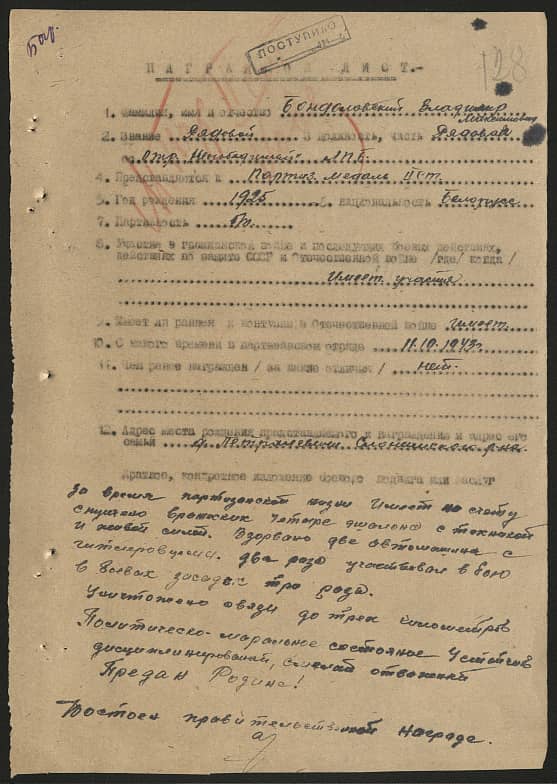 Бог.
ПОСТУПИЛО
128
НАГРАДНОЙ ЛИСТ.-
1. Фамилия, имя и отчество Бондоловский Владимир
Максимович
2. Звание Рядовой 3 Должность, часть Рядовой
Отр. ЛПБ.
4. Представляется к Партиз. медаль II ст.
5. Год рождения 1925 6. национальность Белорус
7. Партийность
8. Участие в гражданской войне и последующих боевых действиях,
действиях по защите СССР и Отечественной войне /где, когда/
Имеет участия
9. Имеет ли ранения и контузии в Отечественной войне Имеет.
10. С какого времени в партизанском отряде 11.10.1943г
11. Чем ранее награжден /за какие отличия/ нет.
12. Адрес места рождения представляемого к награждению и адрес его
семьи д. Петралевичи Слонимского р-на
Краткое, конкретное изложение боевого подвига или заслуг
За время партизанской жизни имеет на счету
спущено вражеских четыре эшалона с техникой
и живой силой. Взорвано две автомашины с
гитлеровцами. два раза участвовал в бою
в боевых засадах три раза.
Уничтожено связи до трех километров
Политическо-моральное состояние Устойчив
дисциплинированый, смелый отважный
Предан Родине!
Достоен правительственной награде.